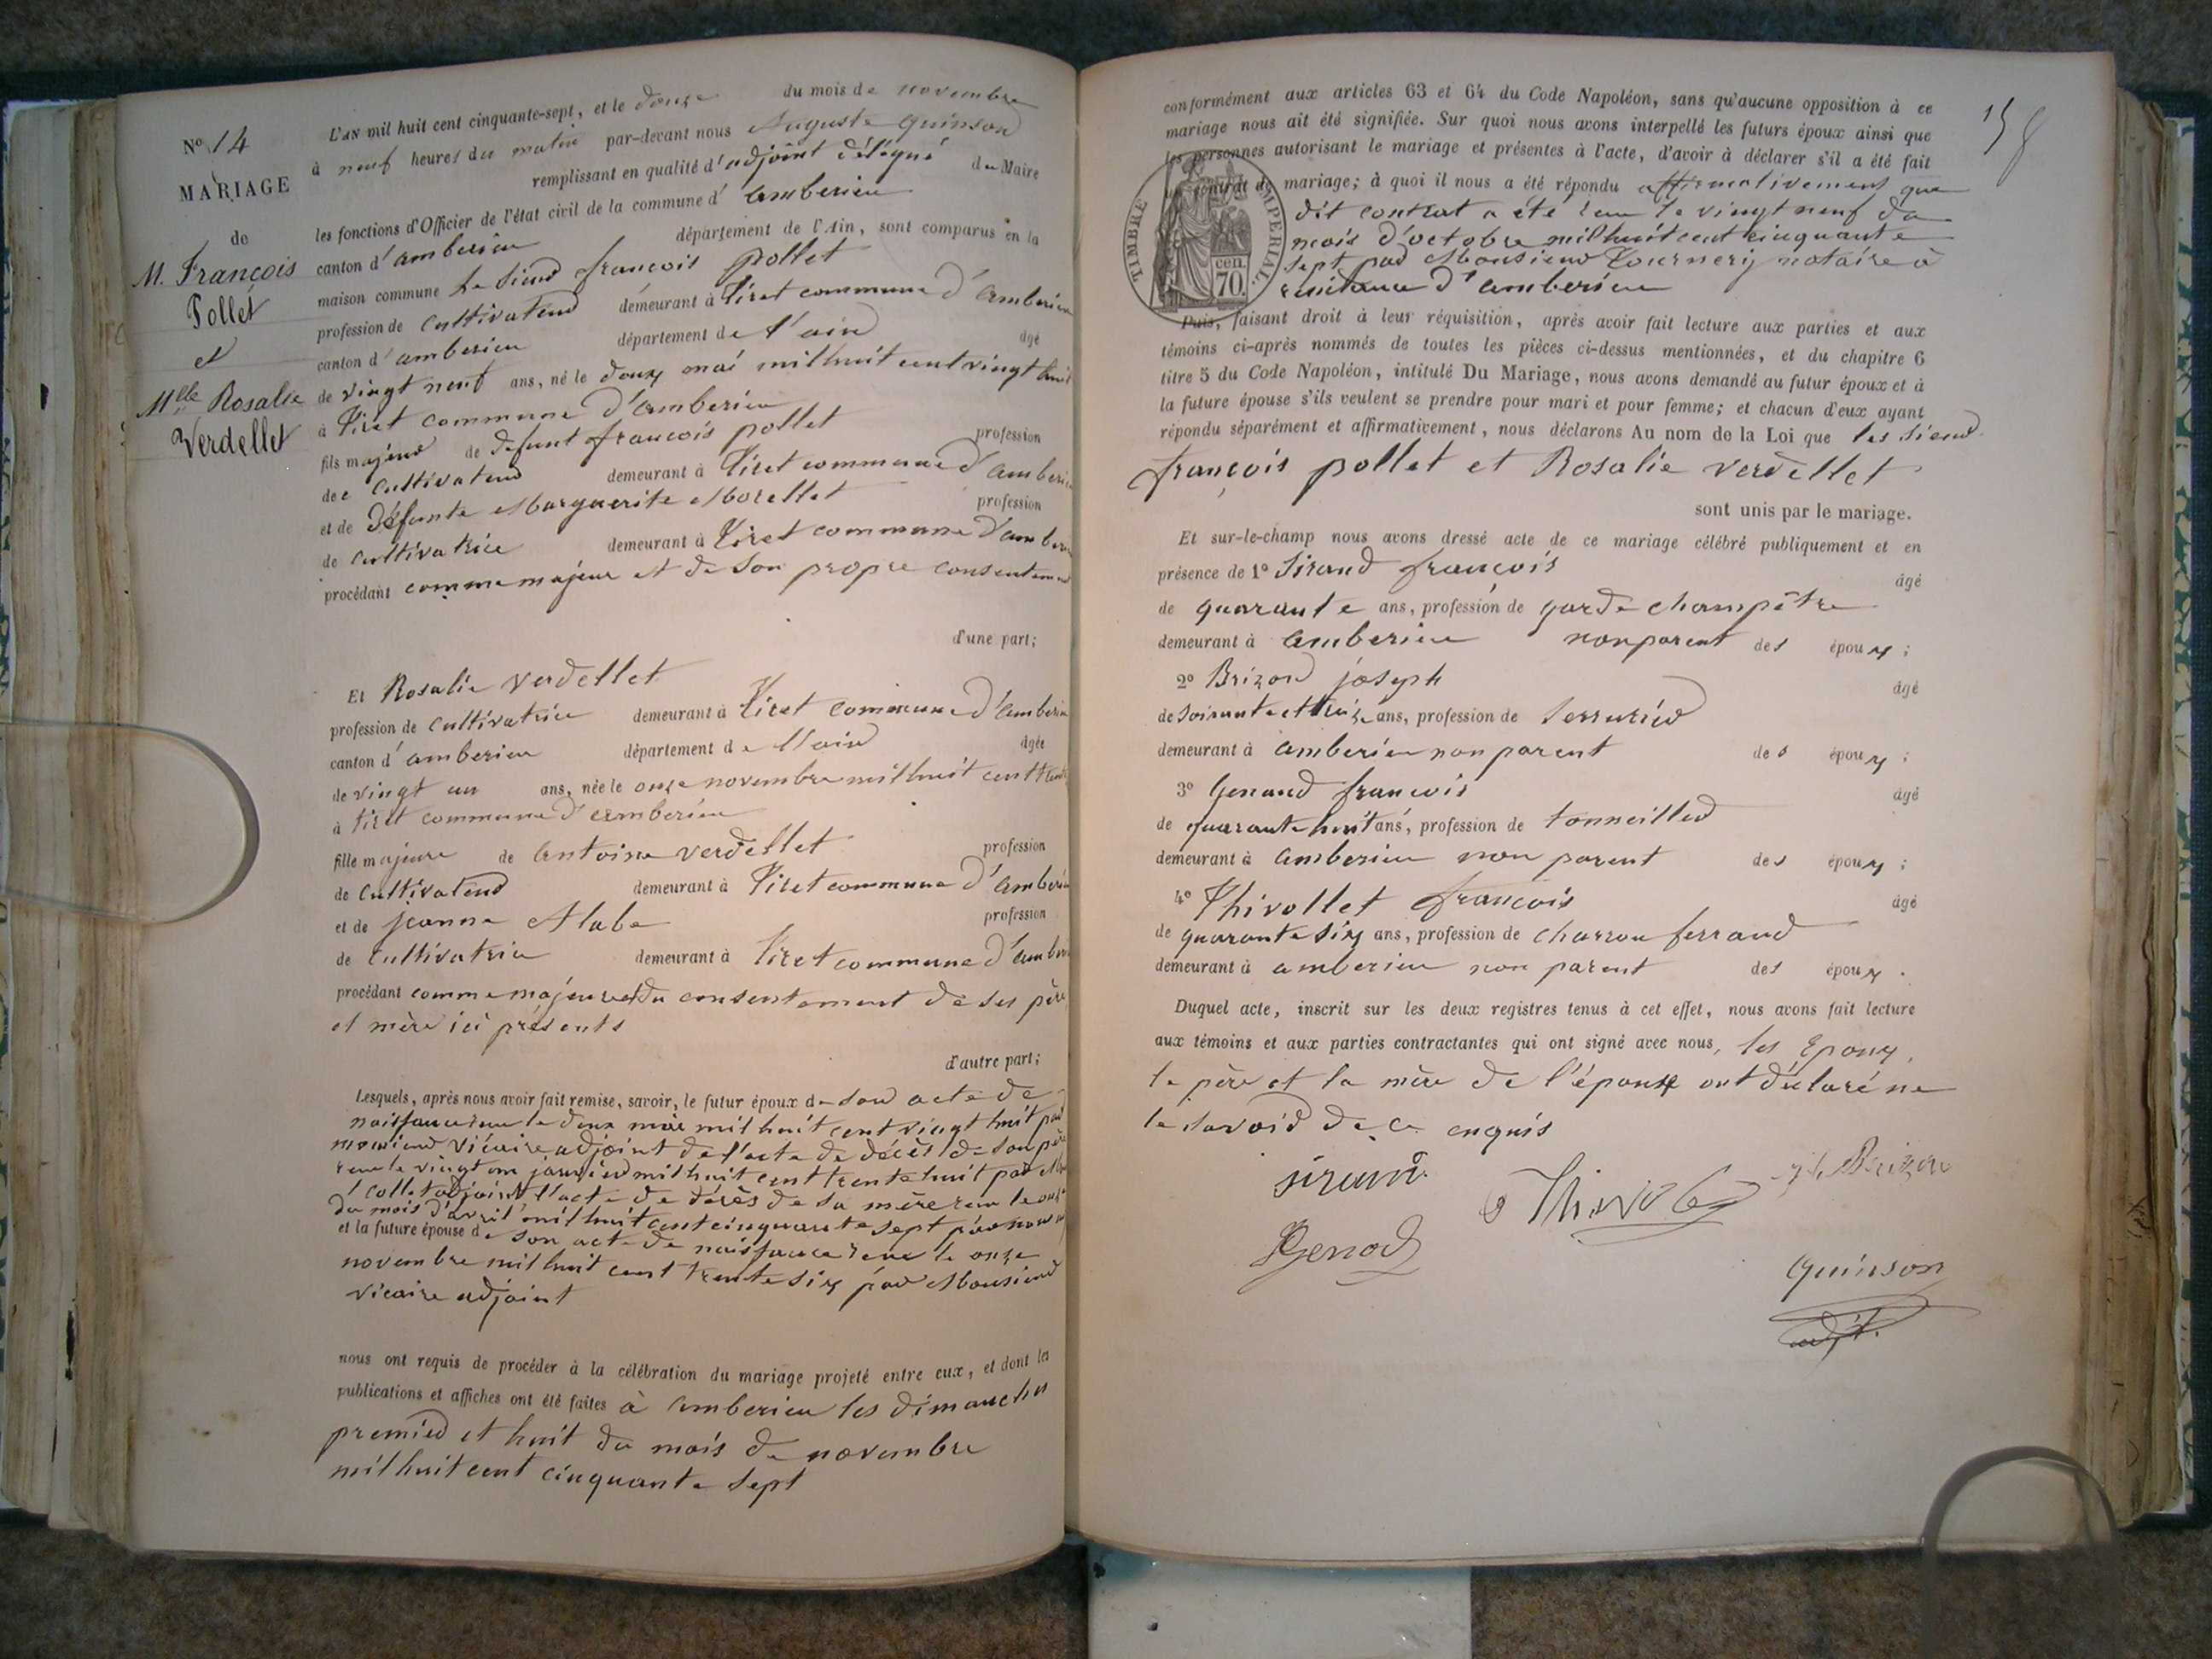 No 14
MARIAGE
de
M. François
Pollet
et
Mlle Rosalie
Verdellet
L'AN mil huit cent cinquante-sept, et le douze du mois de novembre
à neuf heures du matin par-devant nous Auguste Quinson
remplissant en qualité d'adjoint délégué du Maire
les fonctions d'Officier de l'état civil de la commune d'amberieu
canton d'amberieu département de l'Ain, sont comparus en la
maison commune Le Sieur françois pollet
profession de Cultivateur demeurant à Tiret commune d'amberieu
canton d'amberieu département de l'ain âgé
de vingt neuf ans, né le douze mai mil huit cent vingt huit
à Tiret commune d'amberieu
fils majeur de défunt françois pollet profession
de Cultivateur demeurant à Tiret commune d'amberieu
et de Défunte Marguerite Morellet profession
de Cultivatrice demeurant à Tiret commune d'amberieu
procédant comme majeur et de son propre consentement
d'une part;
Et Rosalie verdellet
profession de Cultivatrice demeurant à Tiret commune d'amberieu
canton d'amberieu département de l'ain âgée
de vingt un ans, née le onze novembre mil huit cent trente
à Tiret commune d'amberieu
fille majeure de antoine verdellet profession
de Cultivateur demeurant à Tiret commune d'amberieu
et de jeanne profession
de Cultivatrice demeurant à Tiret commune d'amberieu
procédant comme majeure et du consentement de ses père
et mère ici présents
d'autre part;
Lesquels, après nous avoir fait remise, savoir, le futur époux de son acte de
naissance reçu le douze mai mil huit cent vingt huit par
monsieur vicaire adjoint de l'acte de décès de son père
reçu le vingt un janvier mil huit cent trente huit par
Collet adjoint l'acte de décès de sa mère reçu le onze
du mois d'avril mil huit cent cinquante sept par nous
et la future épouse de son acte de naissance reçu le onze
novembre mil huit cent trente six par Monsieur
vicaire adjoint
nous ont requis de procéder à la célébration du mariage projeté entre eux, et dont les
publications et affiches ont été faites à amberieu les dimanches
premier et huit du mois de novembre
mil huit cent cinquante sept
158
conformément aux articles 63 et 64 du Code Napoléon, sans qu'aucune opposition à ce
mariage nous ait été signifiée. Sur quoi nous avons interpellé les futurs époux ainsi que
les personnes autorisant le mariage et présentes à l'acte, d'avoir à déclarer s'il a été fait
contrat de mariage; à quoi il nous a été répondu affirmativement que
dit contrat a été reçu le vingt neuf du
mois d'octobre mil huit cent cinquante
sept par Monsieur Tournery notaire à
résidence d'amberieu
TIMBRE IMPERIAL.
cen.
70.
Puis, faisant droit à leur réquisition, après avoir fait lecture aux parties et aux
témoins ci-après nommés de toutes les pièces ci-dessus mentionnées, et du chapitre 6
titre 5 du Code Napoléon, intitulé Du Mariage, nous avons demandé au futur époux et à
la future épouse s'ils veulent se prendre pour mari et pour femme; et chacun d'eux ayant
répondu séparément et affirmativement, nous déclarons Au nom de la Loi que les sieur
françois pollet et Rosalie verdellet
sont unis par le mariage.
Et sur-le-champ nous avons dressé acte de ce mariage célébré publiquement et en
présence de 1o Sirand françois âgé
de quarante ans, profession de garde champêtre
demeurant à amberieu non parent des époux;
2o Brizon joseph âgé
de soixante et treize ans, profession de serrurier
demeurant à amberieu non parent des époux;
3o Genaud françois âgé
de quarante huit ans, profession de tonneillier
demeurant à amberieu non parent des époux;
4o Thivollet françois âgé
de quarante six ans, profession de charron ferrand
demeurant à amberieu non parent des époux.
Duquel acte, inscrit sur les deux registres tenus à cet effet, nous avons fait lecture
aux témoins et aux parties contractantes qui ont signé avec nous, les Epoux,
le père et la mère de l'épouse ont déclaré ne
le savoir de ce enquis
sirand
Thivolet
Brizon
Genod
Quinson
adjt.